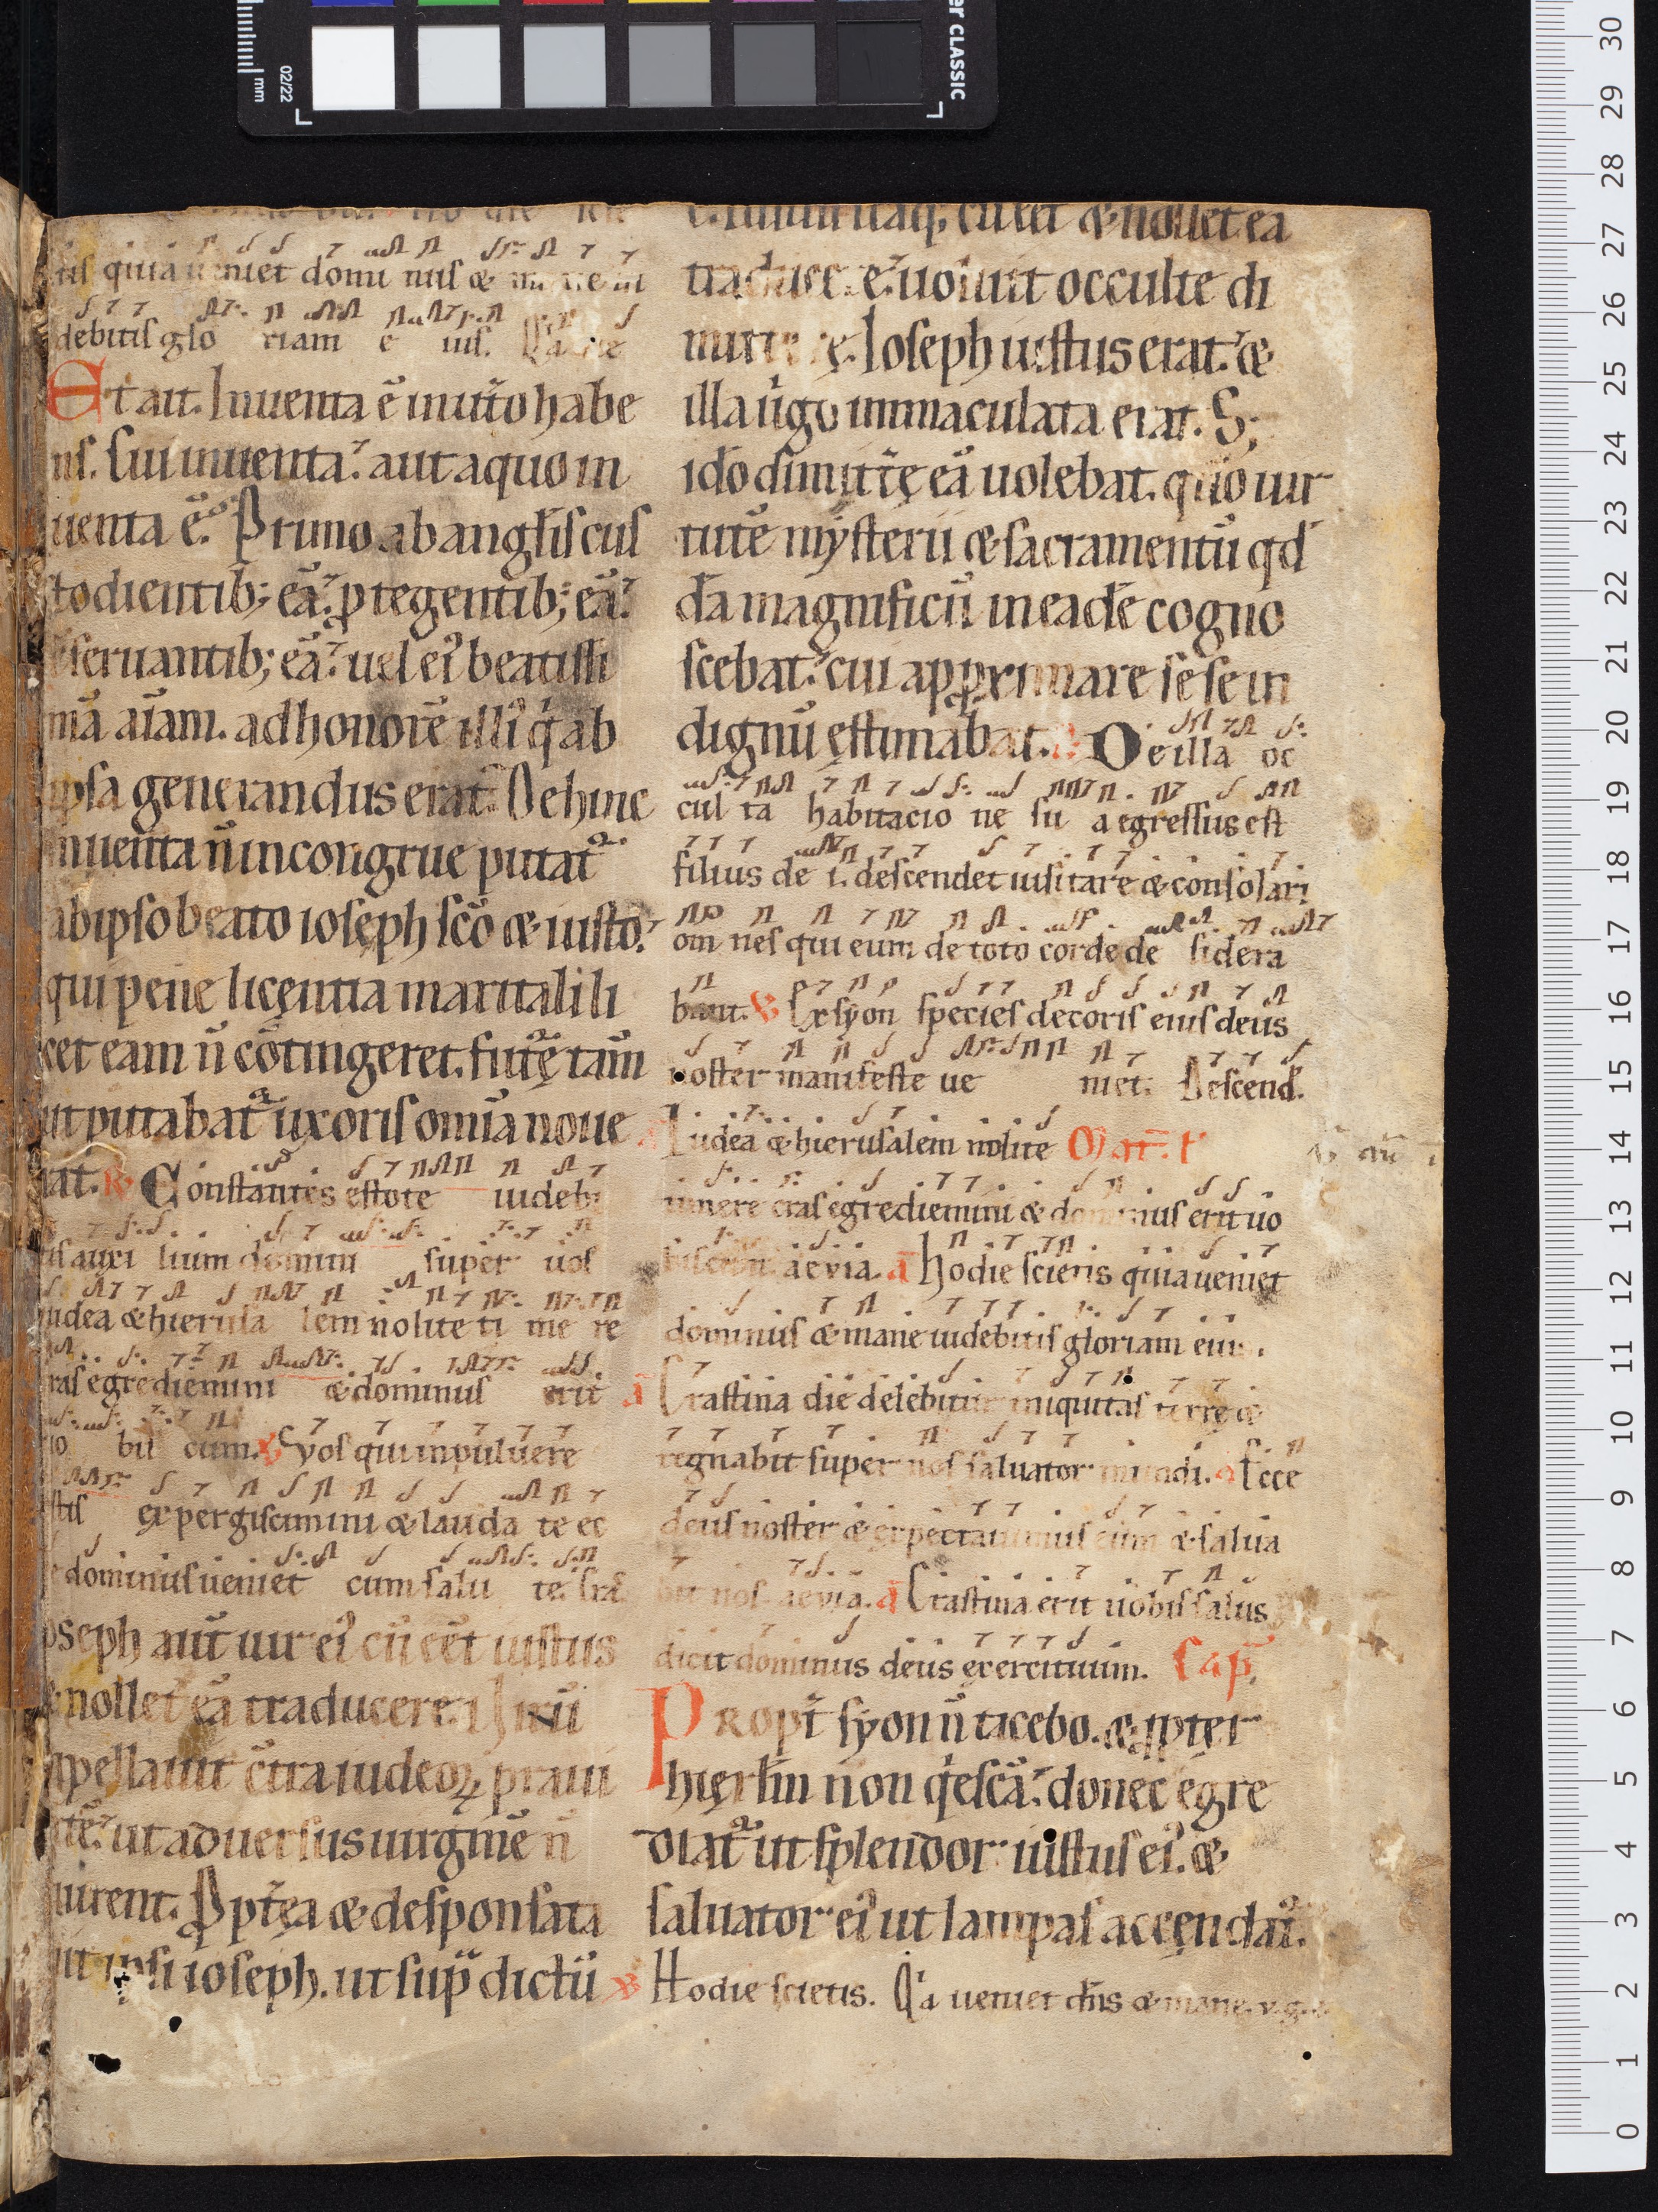 tis quia ueniet domi nus & mane ui
debitis glo riam e ius. Qa uenie
Et ait. Inuenta ē in utō habe
ns. siui inuenta. aut a quo in
uenta ē. Primo ab anglīs cus
todientib; eā. ptegentib; eā.
seruantib; eā. uel ei beatissi
mā aīam. ad honorē illi q ab
ipsa generandus erat. Dehinc
inuenta n̄ incongrue putat
ab ipso beato ioseph scō & iusto.
qui pene licentia maritali li
cet eam n̄ cōtingeret. futę tam̄
ut putabat uxoris omīa noue
rat. R Constantes estote uidebi
tis auxi lium domini super uos
iudea & hierusa lem nolite ti me re
cras egrediemini & dominus erit
uo bis cum. V Vos qui in puluere
estis expergiscimini & lauda te ec
ce dominus ueniet cum salu te. Cras
oseph aut uir ei cū eēt iustus
& nollet eā traducere.
appellauit c̄tra iudeoꝝ praui
tatē. ut aduersus uirginē n̄
uirent. Pptea & desponsata
ut ipsi ioseph. ut sup dictū
itaq; cū eēt & nollet eā
traducere. uoluit occulte di
mittere. Ioseph iustus erat. &
illa ūgo immaculata erat. S;
ido dimittę eā uolebat. quō uir
tutē mysterii & sacramentū qd
dā magnificū in eadē cogno
scebat. cui approximare sese in
dignū ęstimabat. R De illa oc
cul ta habitacio ne su a egressus est
filius de i. descendet uisitare & consolari
om nes qui eum de toto corde de sidera
bant. V Ex syon species decoris eius deus
noster manifeste ue niet. Descend.
Iudea & hierusalem nolite Mat. l
timere cras egrediemini & dominus erit uo
biscum aeuia. ā Hodie scietis quia ueniet
dominus & mane uidebitis gloriam eius.
ā Crastina die delebitur iniquitas terrę &
regnabit super nos saluator mundi. a Ecce
deus noster & expectauimus eum & salua
bit nos aeuia. ā Crastina erit uobis salus
dicit dominus deus exercituum. Cap.
Propt syon n̄ ticebo. & ppter
hierlm̄ non qescā. donec egre
diat ut splendor iustus ei. &
saluator ei ut lampas accendat.
V Hodie scietis. Qa ueniet dn̄s & mane.
02/22
mm
er CLASSIC
30
29
28
27
26
25
24
23
22
21
20
19
18
17
16
15
14
13
12
11
10
9
8
7
6
5
4
3
2
1
0